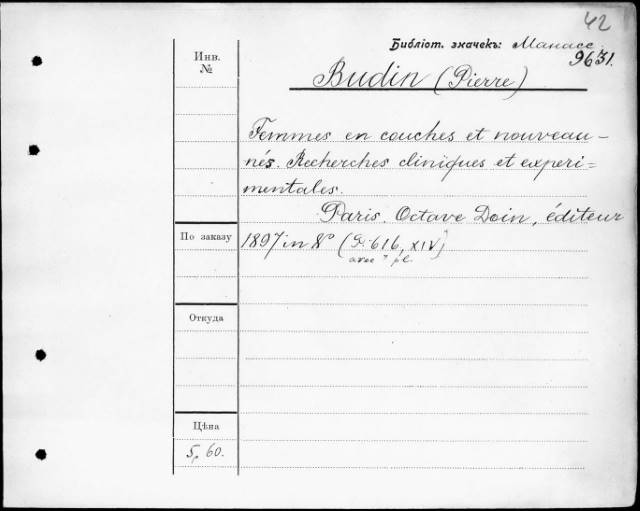 42
Библіот. значекъ: Манасс.
9631.
Инв.
№
Budin (Pierre)
Femmes en couches et nouveau-
nés. Recherches cliniques et experi=
mentales.
Paris. Octave Doin, éditeur
По заказу
1897 in 8° (616, XIV)
avec pl.
Откуда
Цѣна
5, 60.